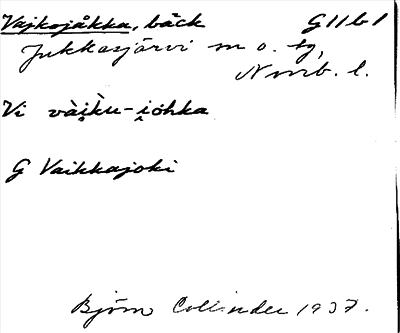 Vajkojåkka, bäck G11b1
Jukkasjärvi sn o. tg,
Norrb. l.
Vi vàiku-iohka
G Vaikkajoki
Björn Collinder 1937.